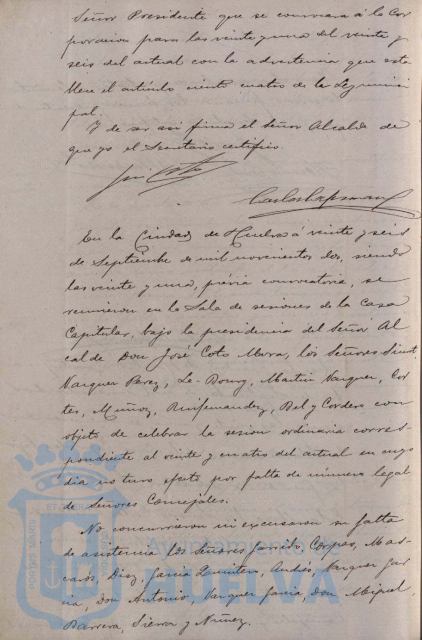 Señor Presidente que se convocara á la Cor
poracion para las veinte y una del veinte y
seis del actual con la advertencia que esta
blece el artículo ciento cuatro de la Ley munici
pal.
Y de ser así firma el Señor Alcalde de
que yo el Secretario certifico.
José Coto
En la Ciudad de Huelva á veinte y seis
de Septiembre de mil novecientos dos, siendo
las veinte y una, prévia convocatoria, se
reunieron en la Sala de sesiones de la Casa
Capitular, bajo la presidencia del Señor Al
calde Don José Coto Mora, los Señores
Vazquez Perez, Le-Bourg, Martin Vazquez, Cor
tés, Muñoz, Bel y Cordero con
objeto de celebrar la sesion ordinaria corres
pondiente al veinte y cuatro del actual en cuyo
dia no tuvo efecto por falta de número legal
de Señores Concejales.
No concurrieron ni excusaron su falta
de asistencia los Señores Garrido, Corpas, Mas
carós, Diaz, Garcia Quintero, Andrés, Vazquez Gar
cia, Don Antonio, Vazquez Garcia, Don Miguel,
Barrera, Sierra y Nuñez.
Ayuntamiento de
HUELVA